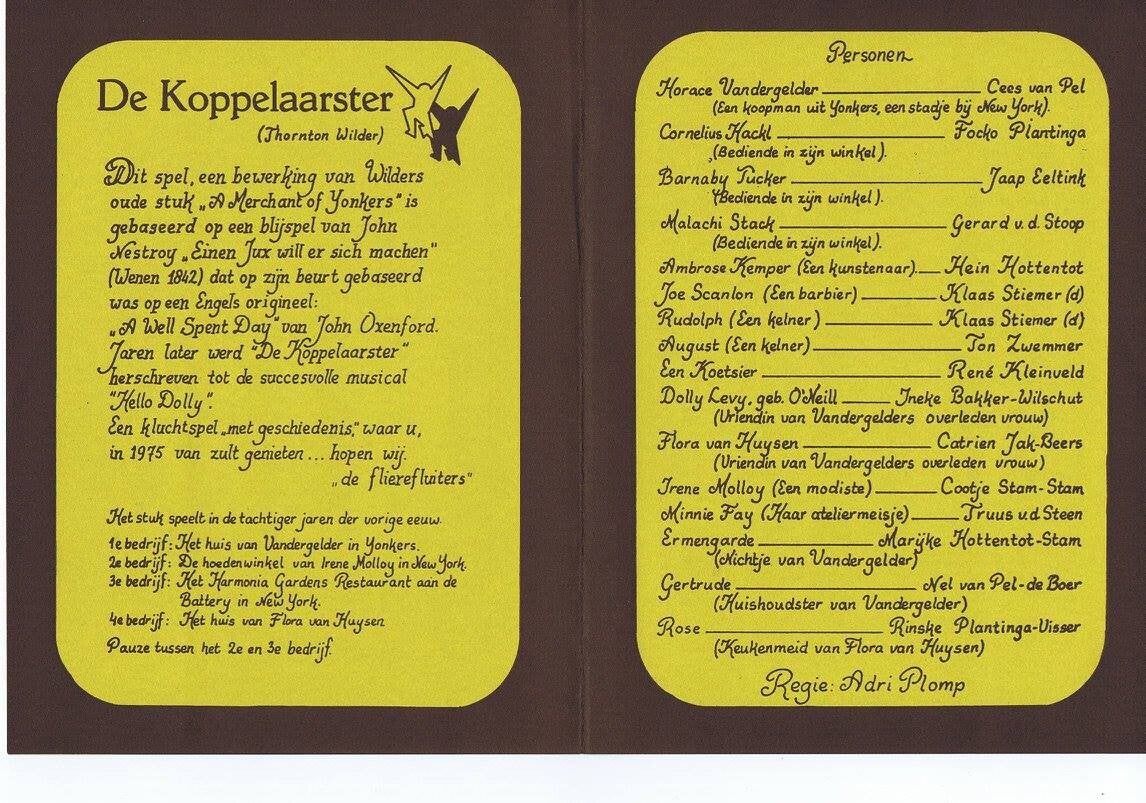 De Koppelaarster
(Thornton Wilder)
Dit spel, een bewerking van Wilders
oude stuk „A Merchant of Yonkers" is
gebaseerd op een blijspel van John
Nestroy „Einen Jux will er sich machen"
(Wenen 1842) dat op zijn beurt gebaseerd
was op een Engels origineel:
„A Well Spent Day" van John Oxenford.
Jaren later werd "De Koppelaarster"
herschreven tot de succesvolle musical
"Hello Dolly".
Een kluchtspel „met geschiedenis," waar u,
in 1975 van zult genieten... hopen wij.
„de flierefluiters"
Het stuk speelt in de tachtiger jaren der vorige eeuw.
1e bedrijf: Het huis van Vandergelder in Yonkers.
2e bedrijf: De hoedenwinkel van Irene Molloy in New York.
3e bedrijf: Het Harmonia Gardens Restaurant aan de
Battery in New York.
4e bedrijf: Het huis van Flora van Huysen
Pauze tussen het 2e en 3e bedrijf.
Personen
Horace Vandergelder Cees van Pel
(Een koopman uit Yonkers, een stadje bij New York).
Cornelius Hackl Focko Plantinga
(Bediende in zijn winkel).
Barnaby Tucker Jaap Eeltink
(Bediende in zijn winkel).
Malachi Stack Gerard v.d. Stoop
(Bediende in zijn winkel).
Ambrose Kemper (Een kunstenaar). Hein Hottentot
Joe Scanlon (Een barbier) Klaas Stiemer (d)
Rudolph (Een kelner) Klaas Stiemer (d)
August (Een kelner) Ton Zwemmer
Een Koetsier René Kleinveld
Dolly Levy, geb. O'Neill Ineke Bakker-Wilschut
(Vriendin van Vandergelders overleden vrouw)
Flora van Huysen Catrien Jak-Beers
(Vriendin van Vandergelders overleden vrouw)
Irene Molloy (Een modiste) Cootje Stam-Stam
Minnie Fay (Haar ateliermeisje) Truus v.d Steen
Ermengarde Marijke Hottentot-Stam
(Nichtje van Vandergelder)
Gertrude Nel van Pel-de Boer
(Huishoudster van Vandergelder)
Rose Rinske Plantinga-Visser
(Keukenmeid van Flora van Huysen)
Regie: Adri Plomp